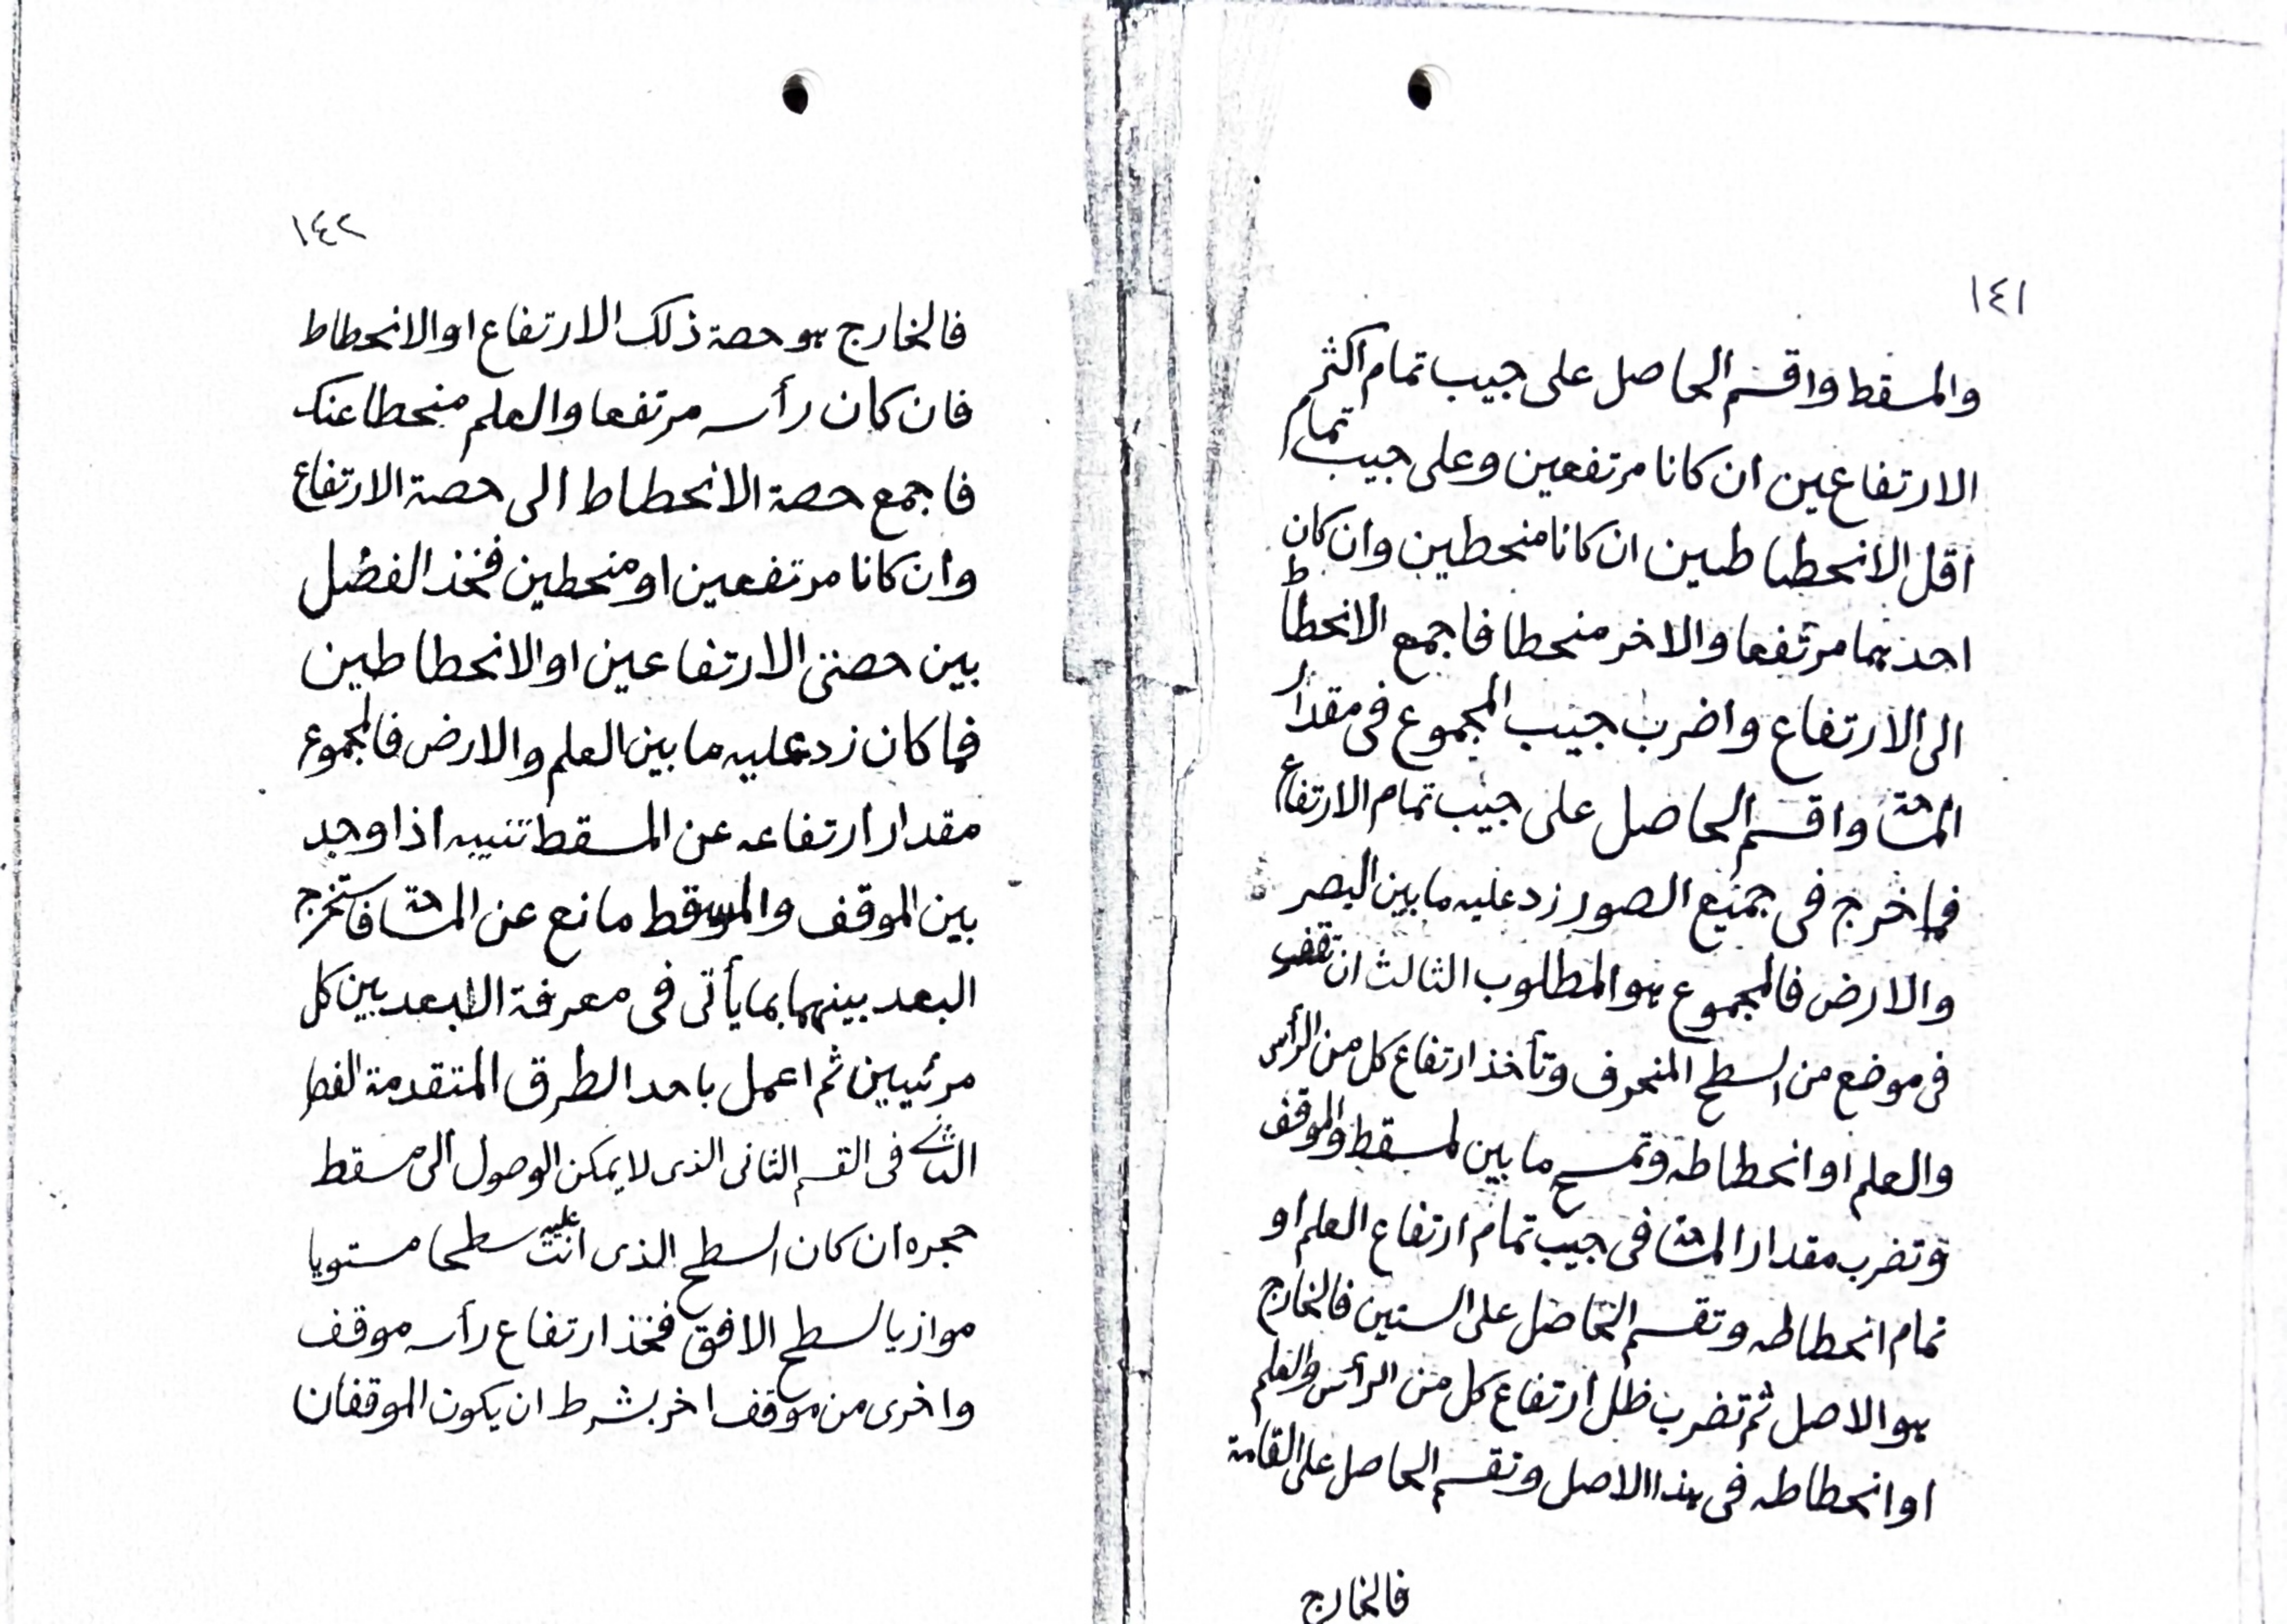 ١٤١
والمسقط واقسم الحاصل على جيب تمام اكثر
الارتفاعين ان كانا مرتفعين وعلى جيب تمام
اقل الانحطاطين ان كانا منحطين وان كان
احدهما مرتفعا والاخر منحطا فاجمع الانحطاط
الى الارتفاع واضرب جيب المجموع فى مقدار
المساحة واقسم الحاصل على جيب تمام الارتفاع
فما خرج فى جميع الصور زد عليه ما بين البصر
والارض فالمجموع هو المطلوب الثالث ان تقف
فى موضع من السطح المنحرف وتأخذ ارتفاع كل من الرأس
والعلم او انحطاطه وتمسح ما بين المسقط والموقف
وتضرب مقدار المساحة فى جيب تمام ارتفاع العلم او
تمام انحطاطه وتقسم الحاصل على الستين فالخارج
هو الاصل ثم تضرب ظل ارتفاع كل من الرأس والعلم
او انحطاطه فى هذا الاصل وتقسم الحاصل على القامة
فالخارج
١٤٢
فالخارج هو حصة ذلك الارتفاع او الانحطاط
فان كان رأسه مرتفعا والعلم منحطا عنك
فاجمع حصة الانحطاط الى حصة الارتفاع
وان كانا مرتفعين او منحطين فخذ الفضل
بين حصتى الارتفاعين او الانحطاطين
فما كان زد عليه ما بين العلم والارض فالمجموع
مقدار ارتفاعه عن المسقط تنبيه اذا وجد
بين الموقف والمسقط مانع عن المساحة فاستخرج
البعد بينهما بما يأتى فى معرفة البعد بين كل
مرئيين ثم اعمل باحد الطرق المتقدمة الفصل
الثانى فى القسم الثانى الذى لا يمكن الوصول الى مسقط
حجره ان كان السطح الذى انت عليه سطحا مستويا
موازيا لسطح الافق فخذ ارتفاع رأسه موقف
واخرى من موقف اخر بشرط ان يكون الموقفان